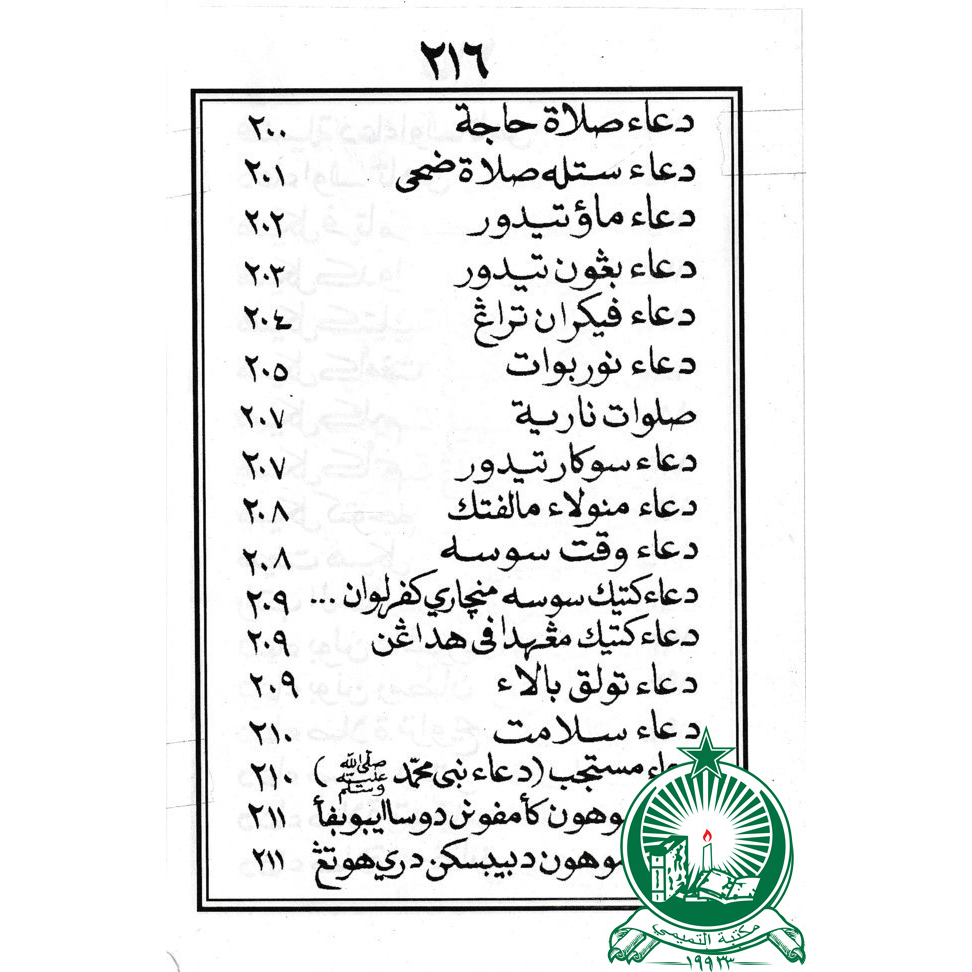 ٢١٦
دعاء صلاة حاجة ٢٠٠
دعاء ستله صلاة ضحى ٢٠١
دعاء ماؤ تيدور ٢٠٢
دعاء بڠون تيدور ٢٠٣
دعاء فيكران تراڠ ٢٠٤
دعاء نور بوات ٢٠٥
صلوات نارية ٢٠٧
دعاء سوكار تيدور ٢٠٧
دعاء منولاء مالفتك ٢٠٨
دعاء وقت سوسه ٢٠٨
دعاء كتيك سوسه منچاري كفرلوان ... ٢٠٩
دعاء كتيك مڠهدافى هداڠن ٢٠٩
دعاء تولق بالاء ٢٠٩
دعاء سلامت ٢١٠
مستجب (دعاء نبى محمّد صلى الله عليه وسلم) ٢١٠
موهون كأمفونن دوسا ايبو بفأ ٢١١
موهون دبيبسكن دري هوتڠ ٢١١
مكتبة التميمي
١٩٩٣٣